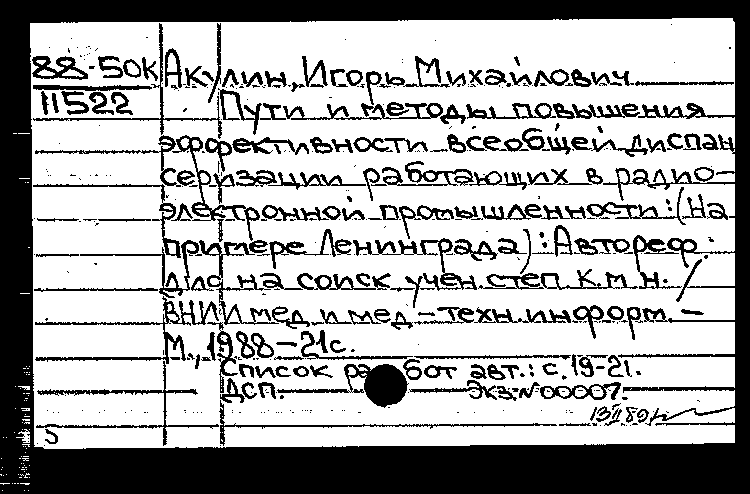 88-50К Акулин, Игорь Михайлович
11522 Пути и методы повышения
эффективности всеобщей диспан
серизации работающих в радио-
электронной промышленности: (На
примере Ленинграда): Автореф.
дис на соиск учен. степ к.м.н. /
ВНИИ мед и мед-техн. информ. -
М., 1988 - 21с.
Список работ авт.: с. 19-21.
ДСП. Экз. № 00007.
5